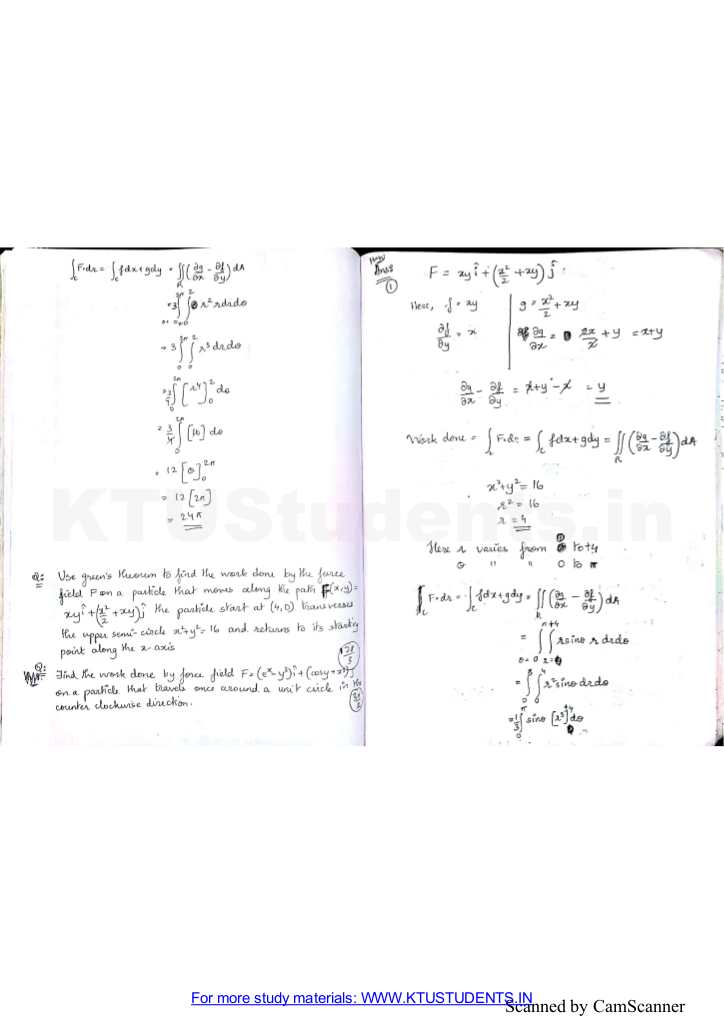 ∫_c F·dr = ∫_c fdx + gdy = ∬_R (∂g/∂x - ∂f/∂y) dA
= 3 ∫_{θ=0}^{2π} ∫_{r=0}^{2} r² r dr dθ
= 3 ∫_0^{2π} ∫_0^2 r³ dr dθ
= 3/4 ∫_0^{2π} [r⁴]_0^2 dθ
= 3/4 ∫_0^{2π} [16] dθ
= 12 [θ]_0^{2π}
= 12 [2π]
= 24π
Q: Use green's theorem to find the work done by the force
field F on a particle that moves along the path F(x,y)=
xy î + (x²/2 + xy) ĵ the particle start at (4,0) transverses
the upper semi-circle x²+y²=16 and returns to its starting
point along the x-axis
Q: Find the work done by force field F = (eˣ - y³) î + (cosy + x³) ĵ
on a particle that travels once around a unit circle in the
counter clockwise direction.
Ans
①
F = xy î + (x²/2 + xy) ĵ
Here, f = xy
g = x²/2 + xy
∂f/∂y = x
∂g/∂x = 2x/2 + y = x+y
∂g/∂x - ∂f/∂y = x+y - x = y
Work done = ∫_c F·dr = ∫_c fdx + gdy = ∬_R (∂g/∂x - ∂f/∂y) dA
x²+y² = 16
r² = 16
r = 4
Here r varies from 0 to +4
θ " " 0 to π
∫_c F·dr = ∫_c fdx + gdy = ∬_R (∂g/∂x - ∂f/∂y) dA
= ∫_{θ=0}^{π} ∫_{r=0}^{+4} r sinθ r dr dθ
= ∫_0^π ∫_0^4 r² sinθ dr dθ
= 1/3 ∫_0^π sinθ [r³]_0^{+4} dθ
KTUStudents.in
For more study materials: WWW.KTUSTUDENTS.IN
Scanned by CamScanner